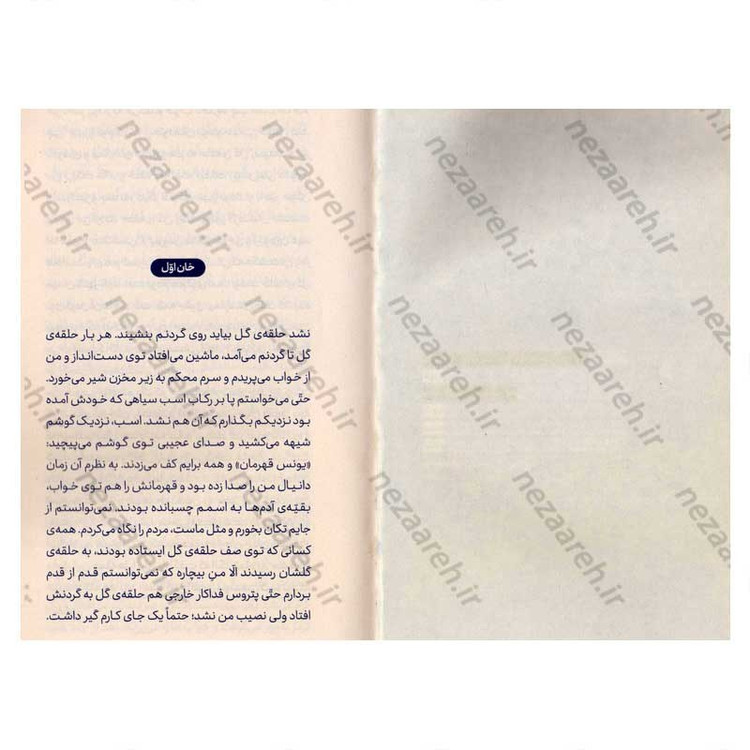 خان اوّل
نشد حلقه‌ی گل بیاید روی گردنم بنشیند. هر بار حلقه‌ی
گل تا گردنم می‌آمد، ماشین می‌افتاد توی دست‌انداز و من
از خواب می‌پریدم و سرم محکم به زیر مخزن شیر می‌خورد.
حتّی می‌خواستم پا بر رکاب اسب سیاهی که خودش آمده
بود نزدیکم بگذارم که آن هم نشد. اسب، نزدیک گوشم
شیهه می‌کشید و صدای عجیبی توی گوشم می‌پیچید:
«یونس قهرمان» و همه برایم کف می‌زدند. به نظرم آن زمان
دانیال من را صدا زده بود و قهرمانش را هم توی خواب،
بقیّه‌ی آدم‌ها به اسمم چسبانده بودند. نمی‌توانستم از
جایم تکان بخورم و مثل ماست، مردم را نگاه می‌کردم. همه‌ی
کسانی که توی صف حلقه‌ی گل ایستاده بودند، به حلقه‌ی
گلشان رسیدند الّا منِ بیچاره که نمی‌توانستم قدم از قدم
بردارم حتّی پتروس فداکار خارجی هم حلقه‌ی گل به گردنش
افتاد ولی نصیب من نشد؛ حتماً یک جای کارم گیر داشت.
nezaareh.ir
nezaareh.ir
nezaareh.ir
nezaareh.ir
nezaareh.ir
nezaareh.ir
nezaareh.ir
nezaareh.ir
nezaareh.ir